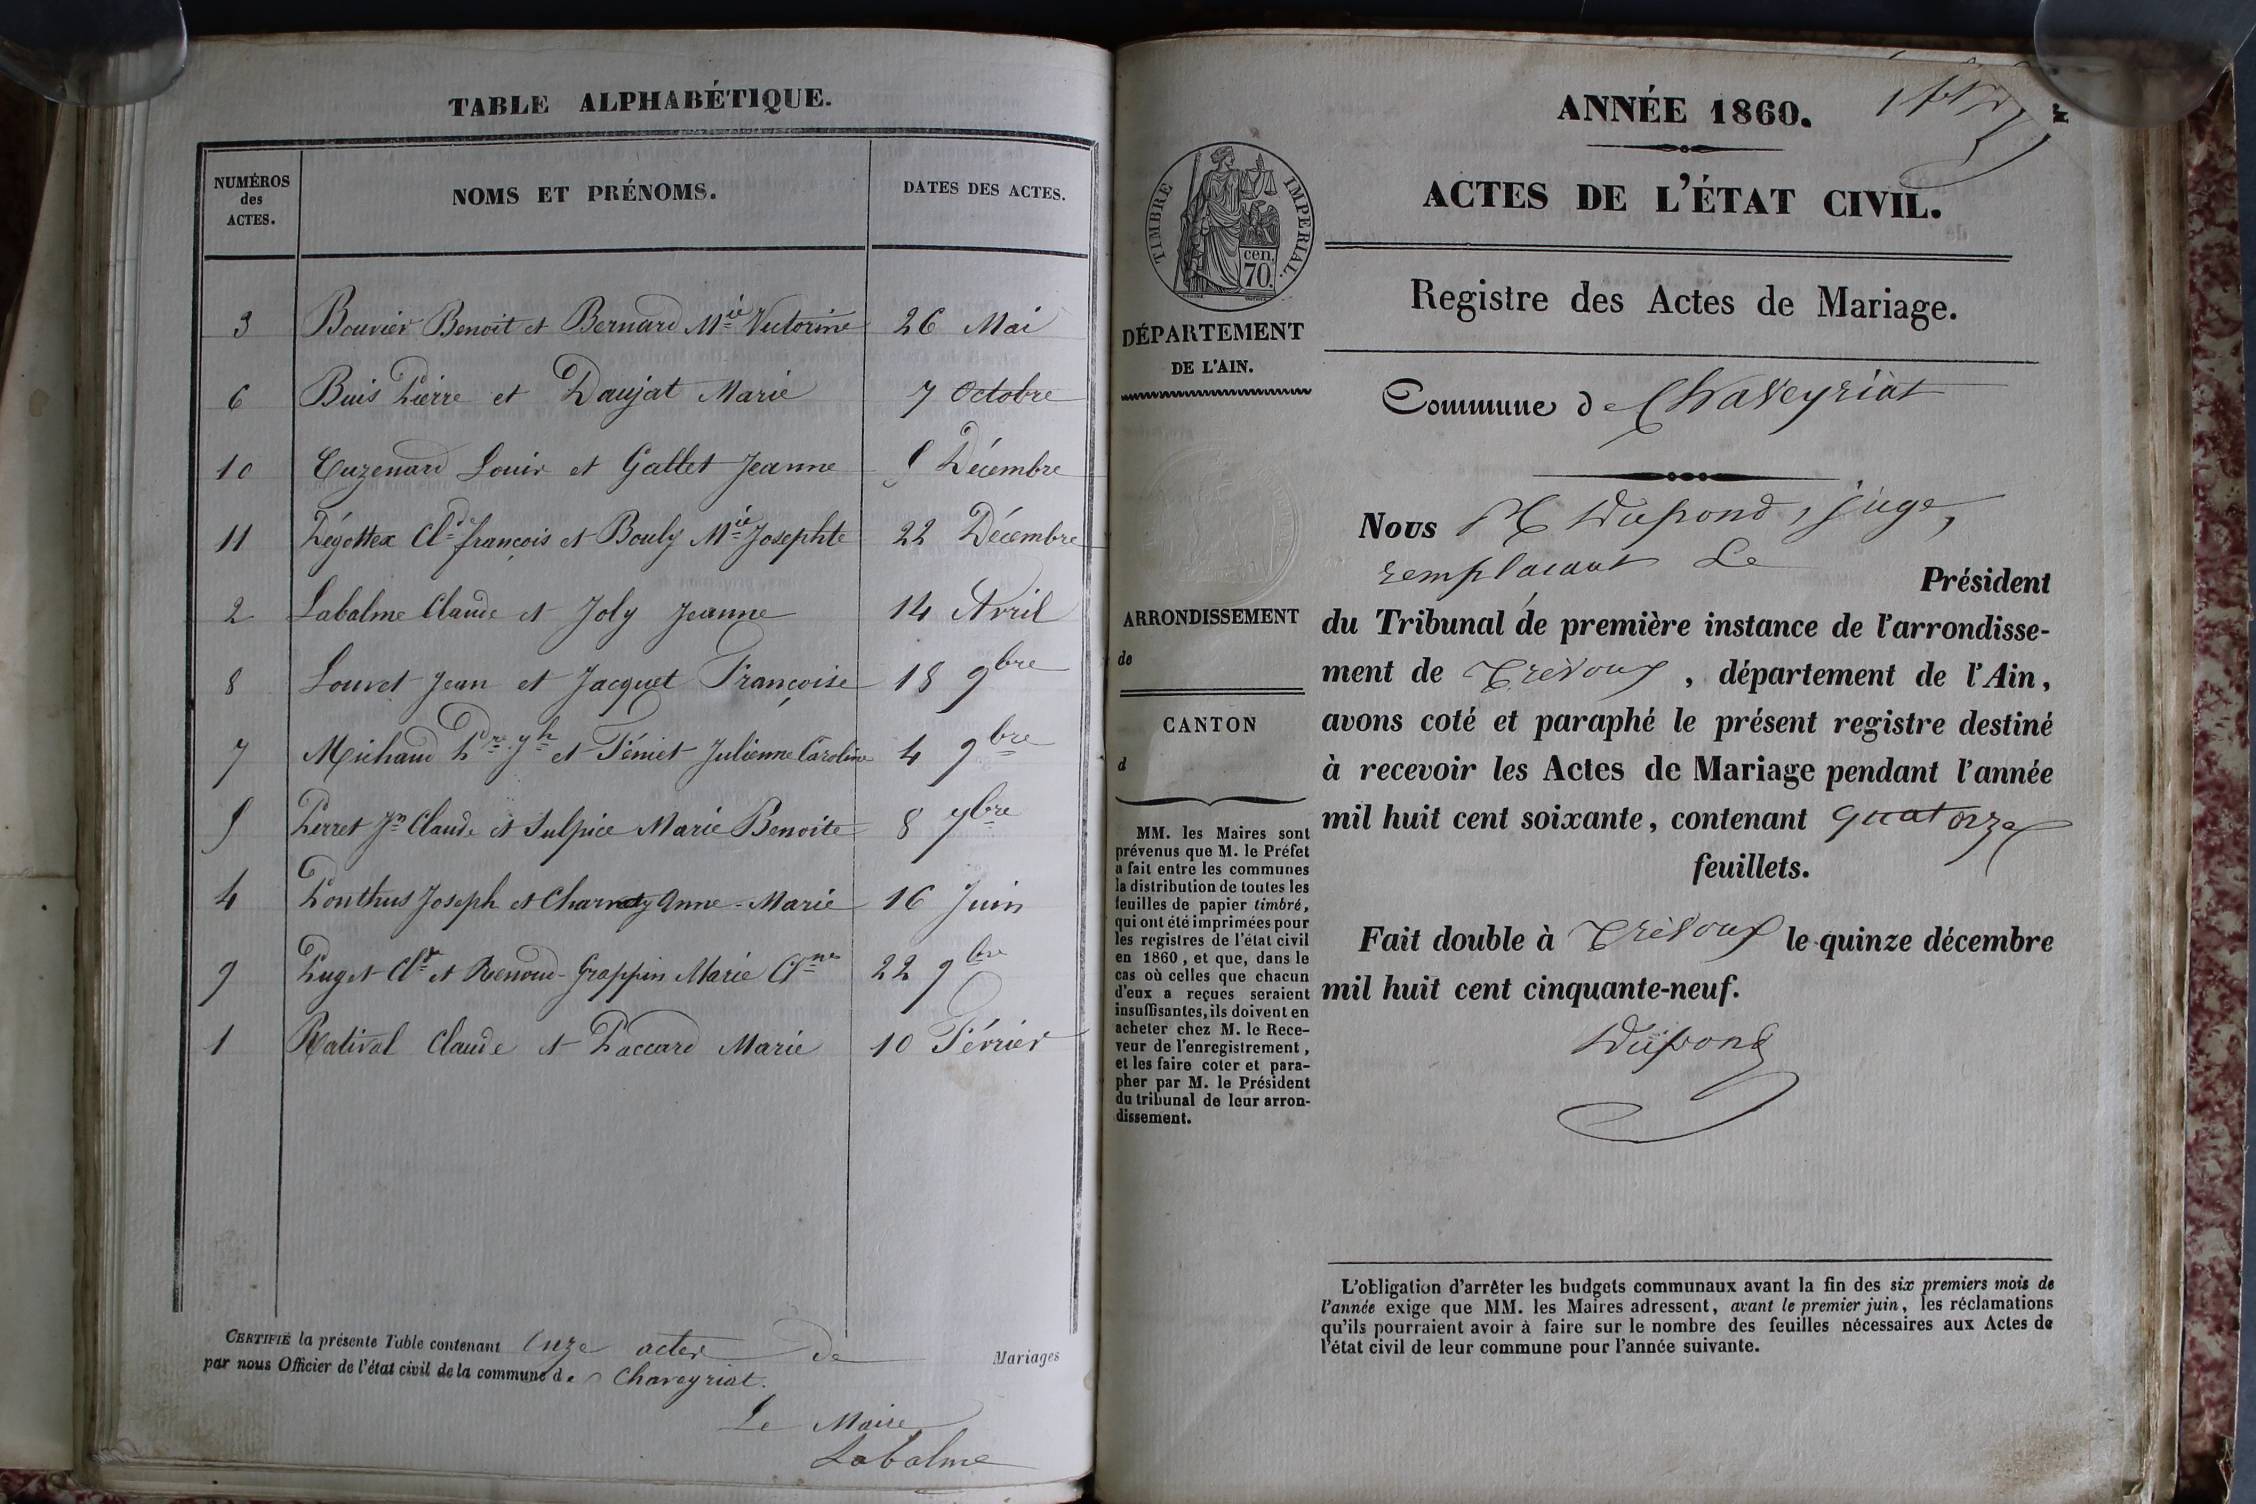 TABLE ALPHABÉTIQUE.
NUMÉROS des ACTES.
NOMS ET PRÉNOMS.
DATES DES ACTES.
3 Bouvier Benoit et Bernard Mie Victorine 26 Mai
6 Buis Pierre et Daujat Marie 7 Octobre
10 Cuzenard Louis et Gallet Jeanne 5 Décembre
11 Légottex Cld François et Bouly Mie Josephte 22 Décembre
2 Labalme Claude et Joly Jeanne 14 Avril
8 Louvet Jean et Jacquet Françoise 18 9bre
7 Michaud Pre Jh et Férriet Julienne Caroline 4 9bre
5 Perret Jn Claude et Sulpice Marie Benoite 8 7bre
4 Ponthus Joseph et Charnay Anne-Marie 16 Juin
9 Puget Cld et Renoud-Grappin Marie 22 9bre
1 Rativol Claude et Paccard Marie 10 Février
CERTIFIÉ la présente Table contenant Onze actes de Mariages
par nous Officier de l'état civil de la commune de Chaveyriat.
Le Maire
Labalme
ANNÉE 1860.
ACTES DE L'ÉTAT CIVIL.
TIMBRE IMPERIAL.
cen.
70.
Registre des Actes de Mariage.
DÉPARTEMENT
DE L'AIN.
Commune de Chaveyriat
Nous M Dupond, juge,
remplacant Le Président
ARRONDISSEMENT
de
CANTON
d
du Tribunal de première instance de l'arrondisse-
ment de Trévoux, département de l'Ain,
avons coté et paraphé le présent registre destiné
à recevoir les Actes de Mariage pendant l'année
mil huit cent soixante, contenant quatorze
feuillets.
Fait double à Trévoux le quinze décembre
mil huit cent cinquante-neuf.
Dupond
MM. les Maires sont
prévenus que M. le Préfet
a fait entre les communes
la distribution de toutes les
feuilles de papier timbré,
qui ont été imprimées pour
les registres de l'état civil
en 1860, et que, dans le
cas où celles que chacun
d'eux a reçues seraient
insuffisantes, ils doivent en
acheter chez M. le Rece-
veur de l'enregistrement,
et les faire coter et para-
pher par M. le Président
du tribunal de leur arron-
dissement.
L'obligation d'arrêter les budgets communaux avant la fin des six premiers mois de
l'année exige que MM. les Maires adressent, avant le premier juin, les réclamations
qu'ils pourraient avoir à faire sur le nombre des feuilles nécessaires aux Actes de
l'état civil de leur commune pour l'année suivante.